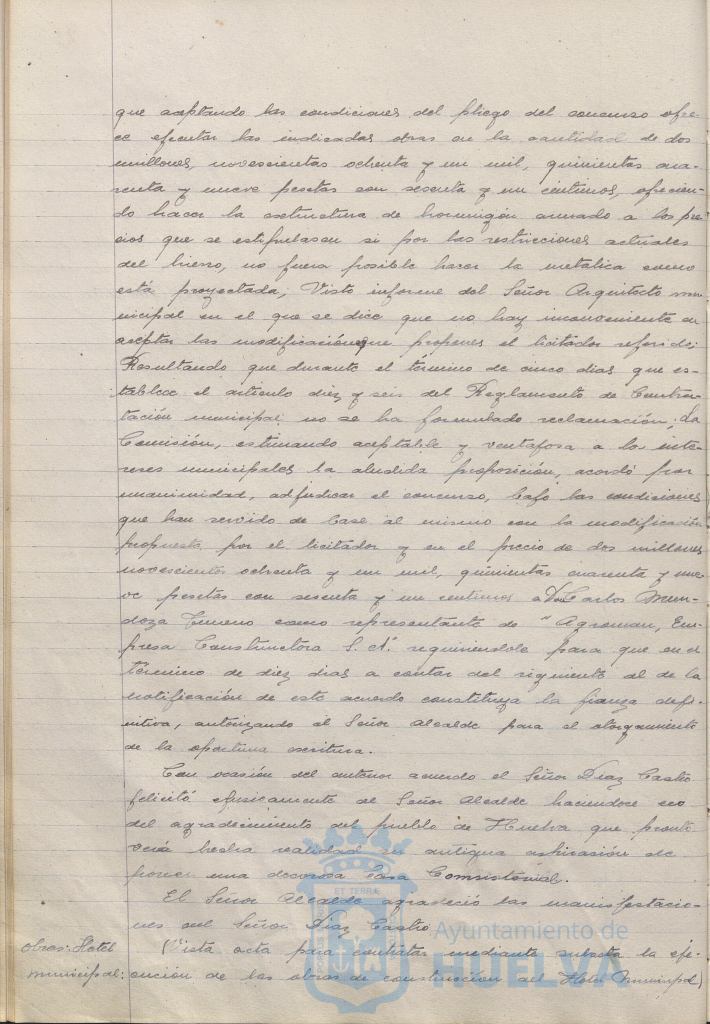 que aceptando las condiciones del pliego del concurso ofre-
ce ejecutar las indicadas obras en la cantidad de dos
millones, novescientas ochenta y un mil, quinientas cua-
renta y nueve pesetas con sesenta y un centimos, ofrecien-
do hacer la estructura de hormigón armado a los pre-
cios que se estipulasen si por las restricciones actuales
del hierro, no fuera posible hacer la metalica como
está proyectada; Visto informe del Señor Arquitecto mu-
nicipal en el que se dice que no hay inconveniente en
aceptar las modificación que propones el licitador referido;
Resultando que durante el término de cinco dias que es-
tablece el articulo diez y seis del Reglamento de Contra-
tación municipal no se ha formulado reclamación; La
Comisión, estimando aceptable y ventajosa a los inte-
reses municipales la aludida proposición, acordó por
unanimidad, adjudicar el concurso, bajo las condiciones
que han servido de base al mismo con la modificación
propuesta por el licitador y en el precio de dos millones
novescientos ochenta y un mil, quinientas cuarenta y nue-
ve pesetas con sesenta y un centimos a Don Carlos Men-
doza Gimeno como representante de "Agroman, Em-
presa Constructora S. A." requiriendole para que en el
término de diez dias a contar del siguiente al de la
notificación de este acuerdo constituya la fianza defi-
nitiva, autorizando al Señor Alcalde para el otorgamiento
de la oportuna escritura.
Con ocasión del anterior acuerdo el Señor Diaz Castro
felicitó efusicamente al Señor Alcalde haciendose eco
del agradecimiento del pueblo de Huelva que pronto
verá hecha realidad su antigua aspiración de
poseer una decorosa Casa Comsistorial.
El Señor Alcalde agradeció las manifestacio-
nes del Señor Diaz Castro.
Obras: Hotel (Vista acta para contratar mediante subasta la eje-
municipal: cución de las obras de construcción del Hotel Municipal)
ET TERRÆ
Ayuntamiento de
HUELVA